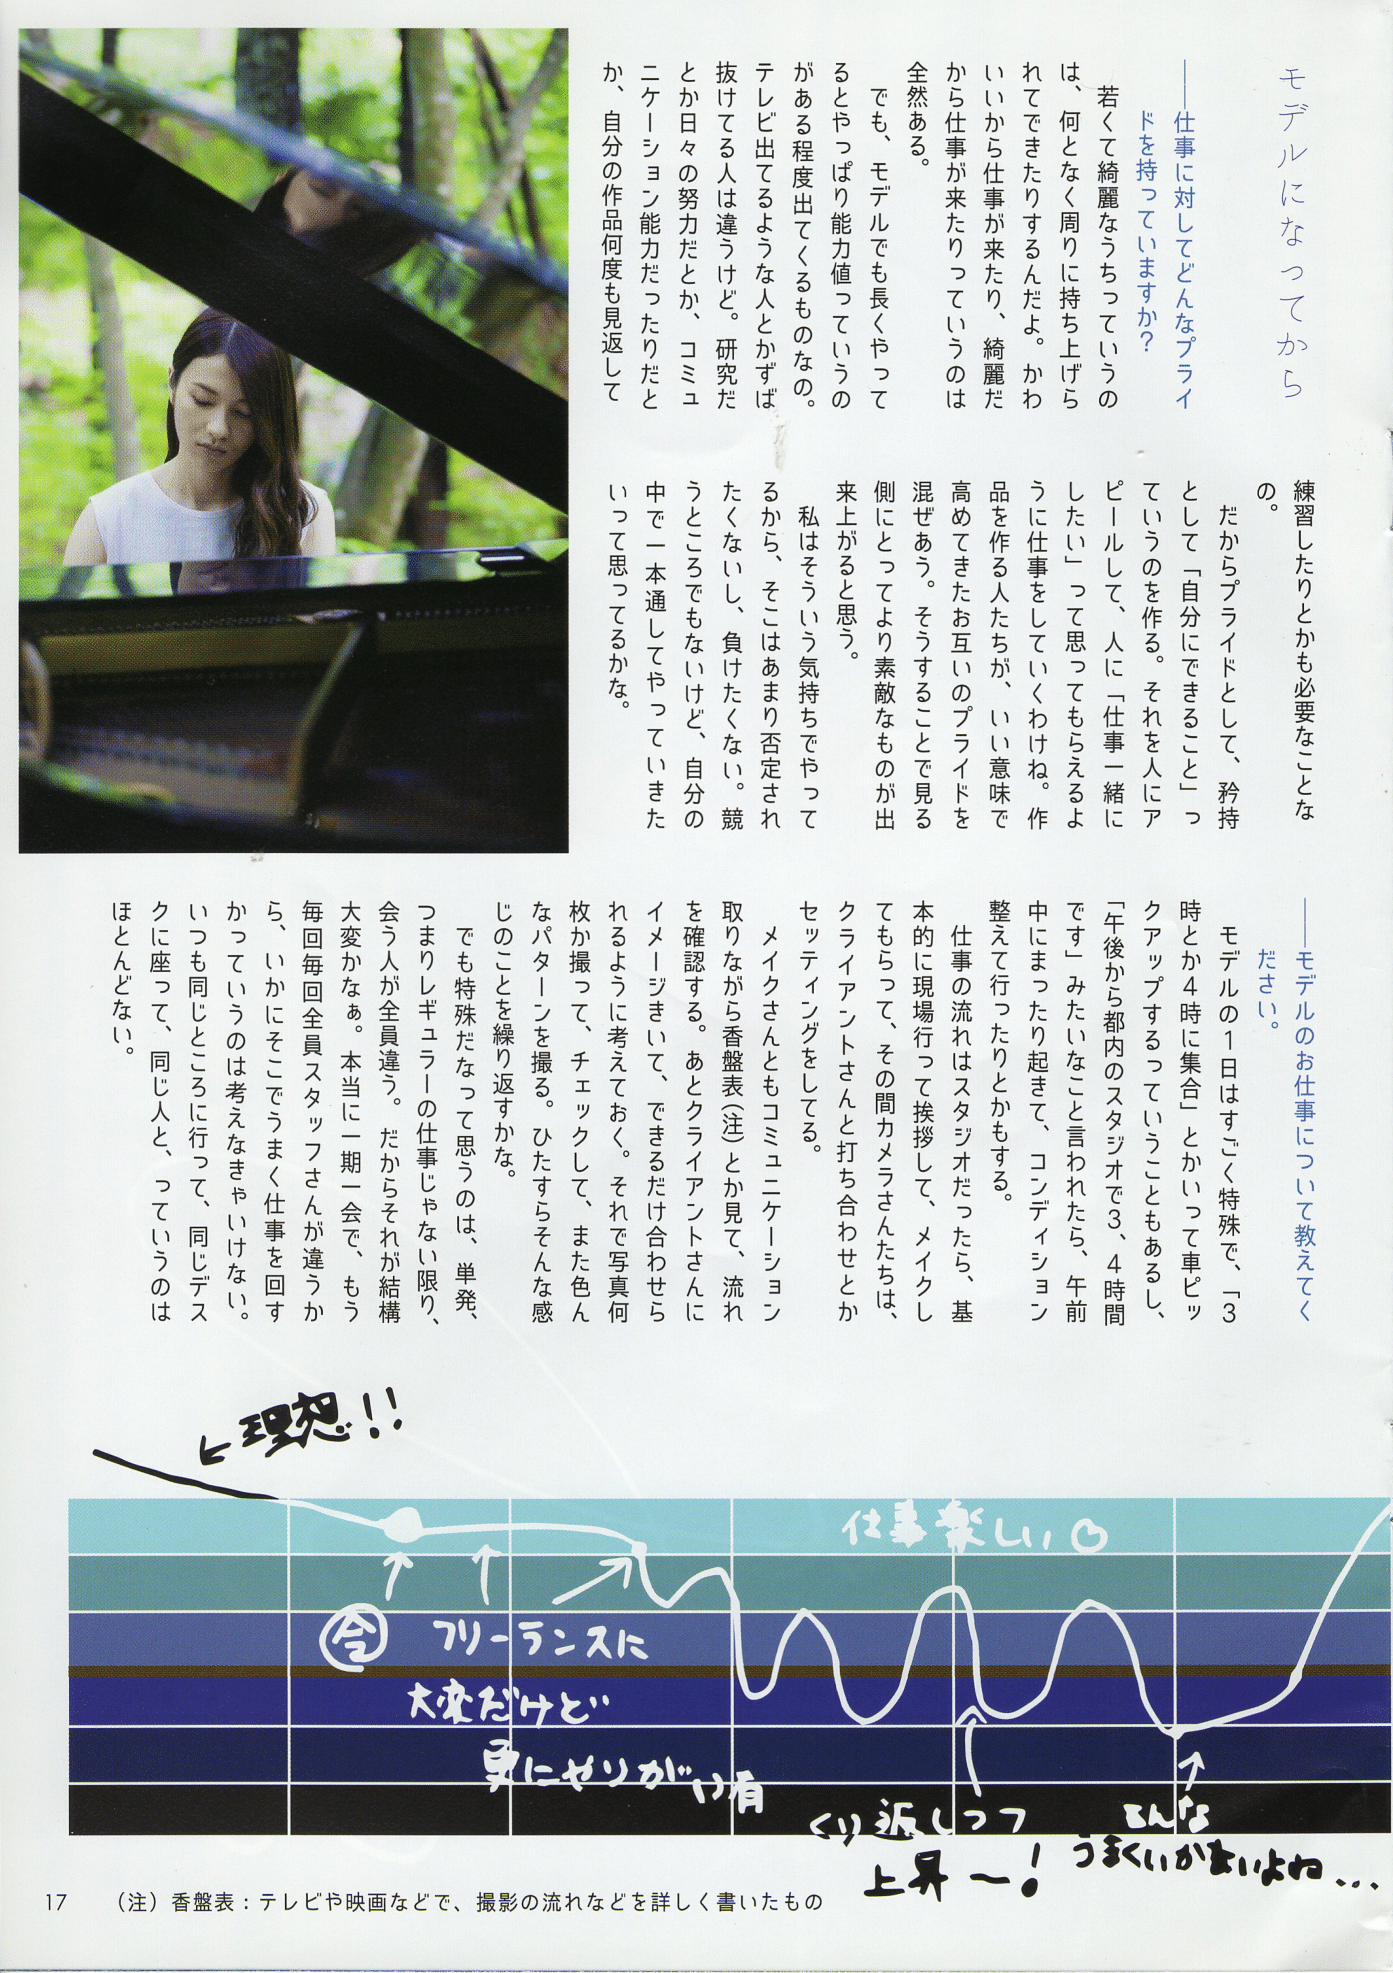 モデルになってから
――仕事に対してどんなプライ
ドを持っていますか?
若くて綺麗なうちっていうの
は、何となく周りに持ち上げら
れてできたりするんだよ。かわ
いいから仕事が来たり、綺麗だ
から仕事が来たりっていうのは
全然ある。
でも、モデルでも長くやって
るとやっぱり能力値っていうの
がある程度出てくるものなの。
テレビ出てるような人とかずば
抜けてる人は違うけど。研究だ
とか日々の努力だとか、コミュ
ニケーション能力だったりだと
か、自分の作品何度も見返して
練習したりとかも必要なことな
の。
だからプライドとして、矜持
として「自分にできること」っ
ていうのを作る。それを人にア
ピールして、人に「仕事一緒に
したい」って思ってもらえるよ
うに仕事をしていくわけね。作
品を作る人たちが、いい意味で
高めてきたお互いのプライドを
混ぜあう。そうすることで見る
側にとってより素敵なものが出
来上がると思う。
私はそういう気持ちでやって
るから、そこはあまり否定され
たくないし、負けたくない。競
うところでもないけど、自分の
中で一本通してやっていきた
いって思ってるかな。
――モデルのお仕事について教えてく
ださい。
モデルの1日はすごく特殊で、「3
時とか4時に集合」とかいって車ピッ
クアップするっていうこともあるし、
「午後から都内のスタジオで3、4時間
です」みたいなこと言われたら、午前
中にまったり起きて、コンディション
整えて行ったりとかもする。
仕事の流れはスタジオだったら、基
本的に現場行って挨拶して、メイクし
てもらって、その間カメラさんたちは、
クライアントさんと打ち合わせとか
セッティングをしてる。
メイクさんともコミュニケーション
取りながら香盤表(注)とか見て、流れ
を確認する。あとクライアントさんに
イメージきいて、できるだけ合わせら
れるように考えておく。それで写真何
枚か撮って、チェックして、また色ん
なパターンを撮る。ひたすらそんな感
じのことを繰り返すかな。
でも特殊だなって思うのは、単発、
つまりレギュラーの仕事じゃない限り、
会う人が全員違う。だからそれが結構
大変かなぁ。本当に一期一会で、もう
毎回毎回全員スタッフさんが違うか
ら、いかにそこでうまく仕事を回す
かっていうのは考えなきゃいけない。
いつも同じところに行って、同じデス
クに座って、同じ人と、っていうのは
ほとんどない。
理想!!
仕事楽しい
今
フリーランスに
大変だけど
更にやりがい有
くり返しつつ
上昇〜!
そんな
うまくいかないよね...
17
(注)香盤表:テレビや映画などで、撮影の流れなどを詳しく書いたもの